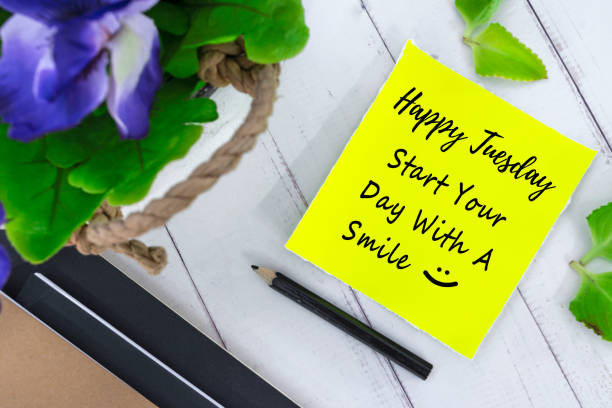 Happy Tuesday
Start Your
Day With A
Smile